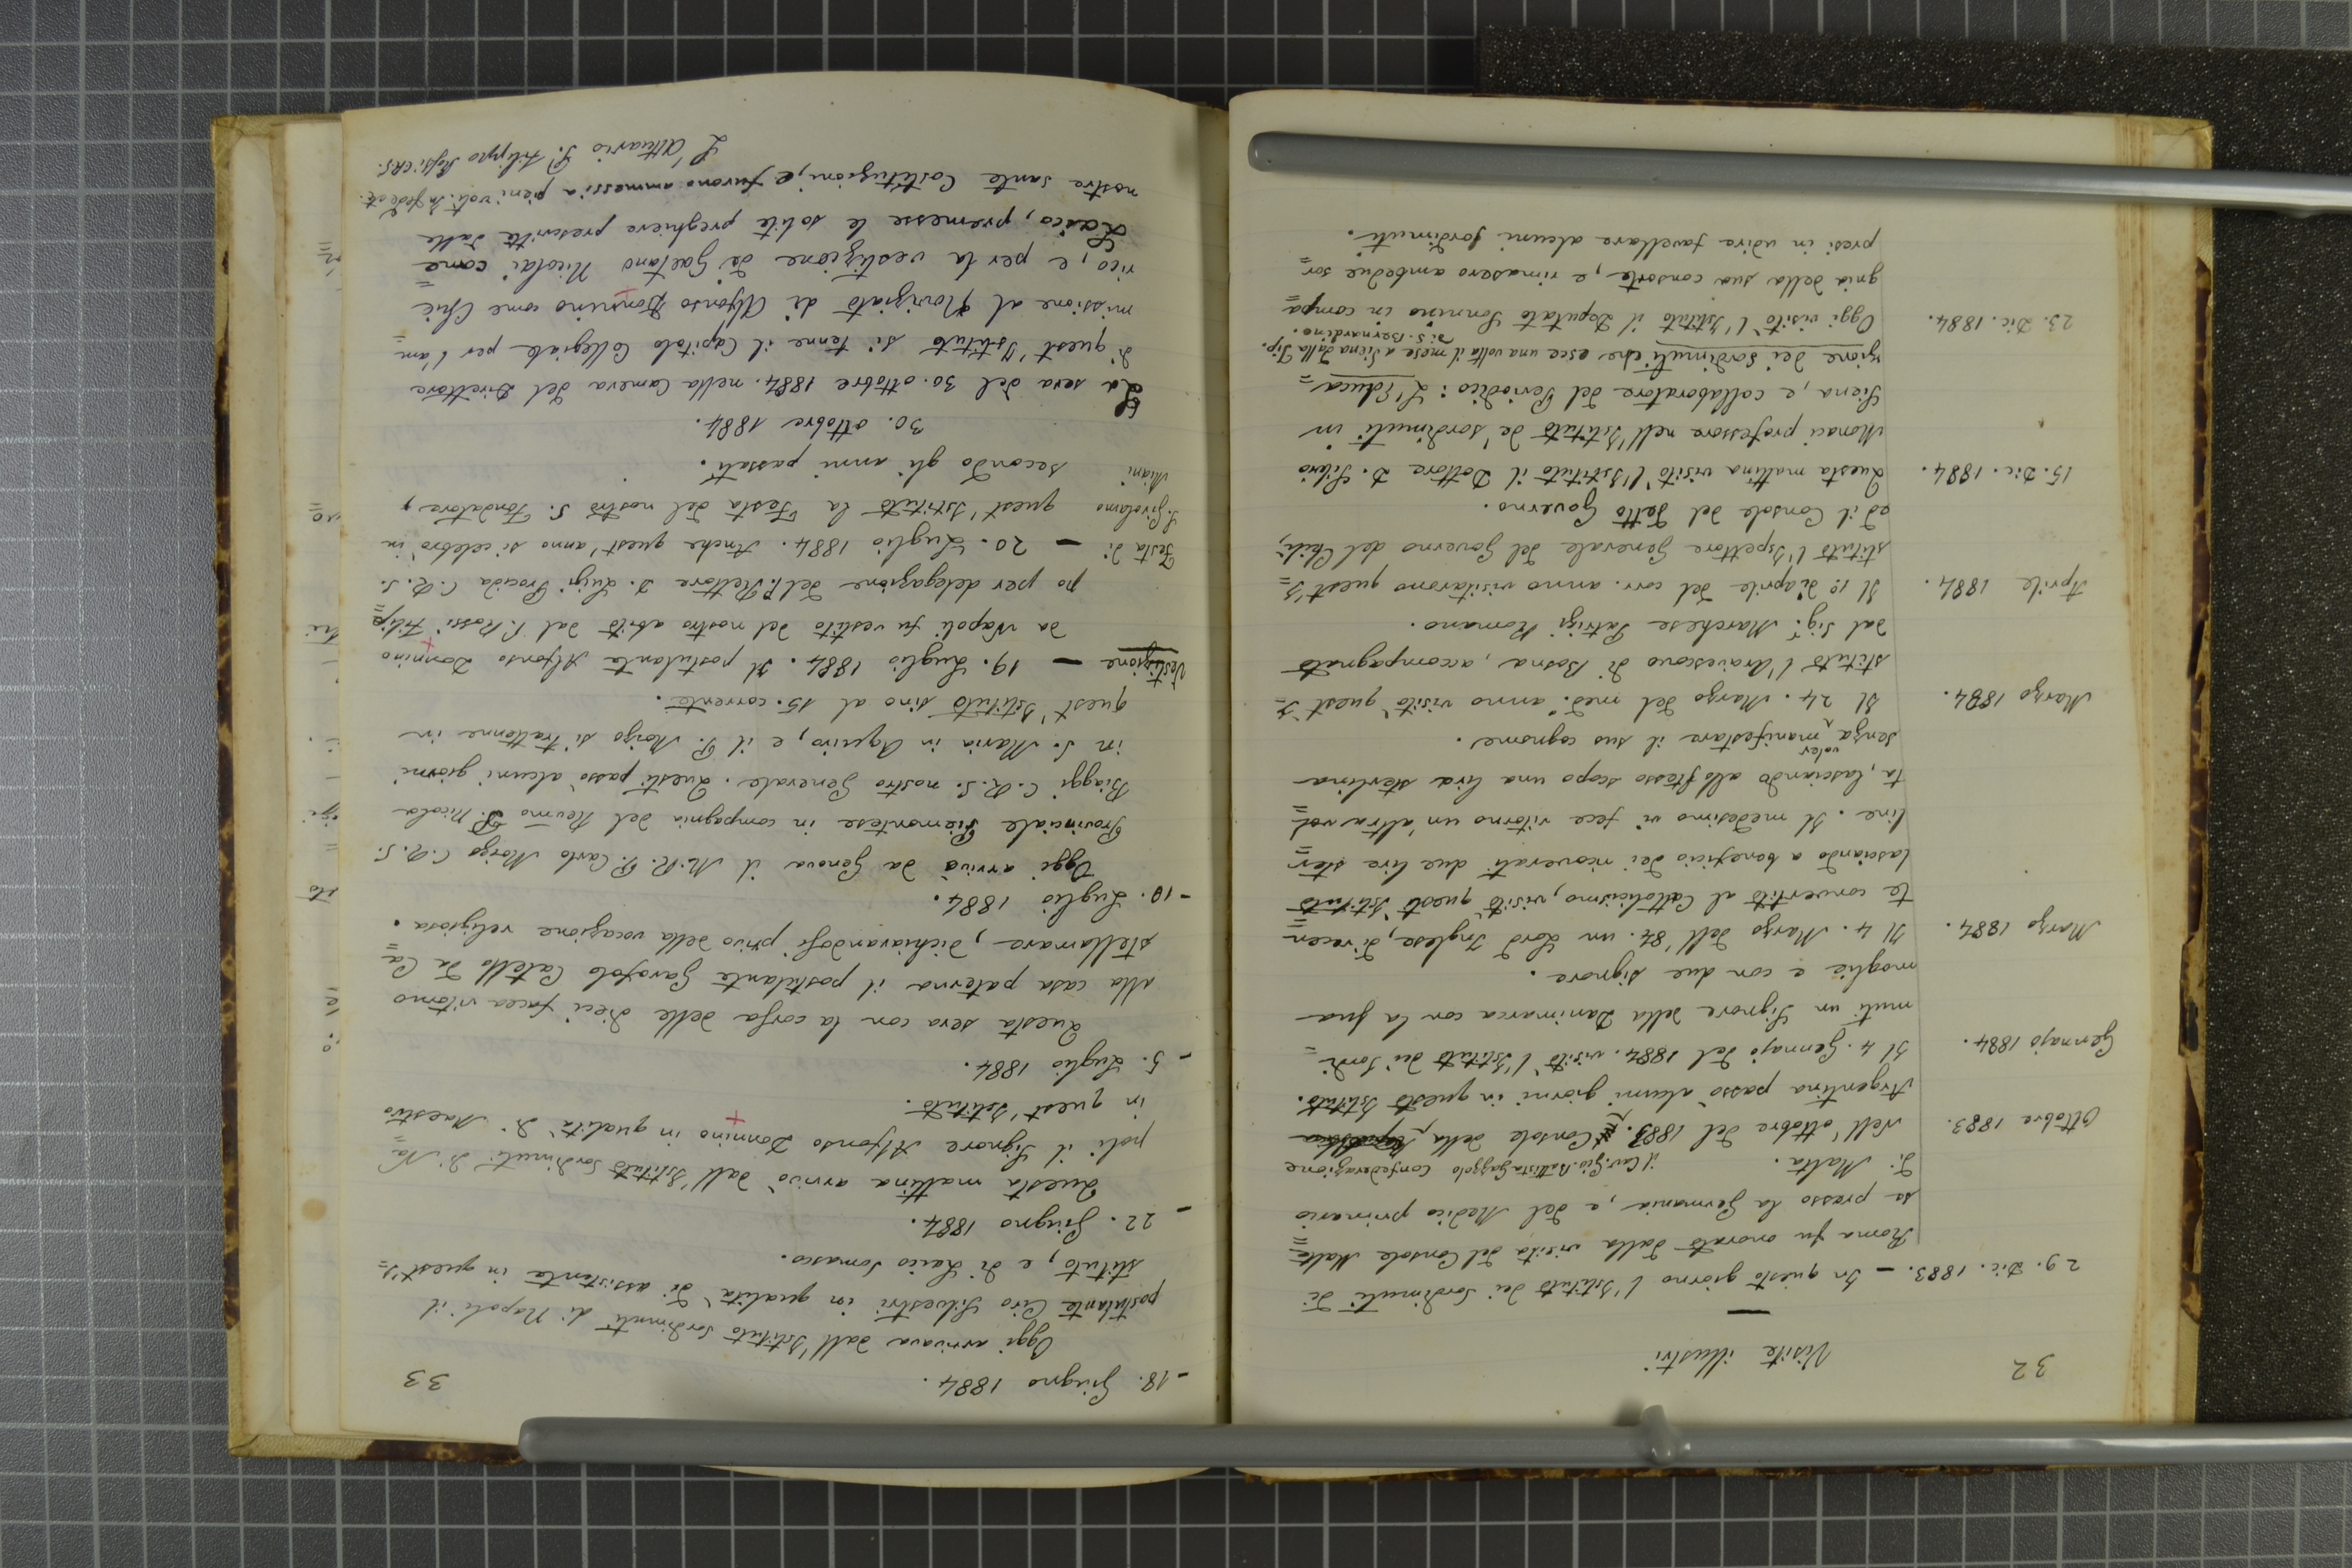 32
Visite illustri
29. Dic. 1883. — In questo giorno l'Istituto dei Sordimuti di
Roma fu onorato dalla visita del Console Malte=
se presso la Germania, e del Medico primario
di Malta.
il Cav. Gio. Battista Gazzolo Confederazione
Ottobre 1883. Nell'ottobre del 1883. Console della
Argentina passò alcuni giorni in questo Istituto.
Gennajo 1884. Il 4. Gennajo del 1884. visitò l'Istituto dei Sordi=
muti un Signore della Danimarca con la sua
moglie e con due signore.
Marzo 1884. Il 4. Marzo dell'84. un Lord Inglese, di recen=
te convertito al Cattolicismo, visitò questo Istituto
lasciando a benefizio dei ricoverati due lire ster=
line. Il medesimo vi fece ritorno un'altra vol=
ta, lasciando allo stesso scopo una lira sterlina
senza voler manifestare il suo cognome.
Marzo 1884. Il 24. Marzo del med.° anno visitò quest'I=
stituto l'Arcivescovo di Bosna, accompagnato
dal Sig.r Marchese Patrizi Romano.
Aprile 1884. Il 1° d'aprile del corr. anno visitarono quest'I=
stituto l'Ispettore Generale del Governo del Chilì,
ed il Console del detto Governo.
15. Dic. 1884. Questa mattina visitò l'Istituto il Dottore D. Silvio
Monaci professore nell'Istituto de' sordimuti in
Siena, e collaboratore del Periodico: L'Educa=
zione dei sordimuti che esce una volta il mese a Siena dalla Tip.
di S. Bernardino.
23. Dic. 1884. Oggi visitò l'Istituto il Deputato Sonnino in compa=
gnia della sua consorte, e rimasero ambedue sor=
presi in udire favellare alcuni sordimuti.
33
- 18. Giugno 1884.
Oggi arrivava dall'Istituto Sordimuti di Napoli il
postulante Ciro Silvestri in qualità di assistente in quest'I=
stituto, e di Laico Somasco.
- 22. Giugno 1884.
Questa mattina arrivò dall'Istituto Sordimuti di Na=
poli il Signore Alfonso Donnino in qualità di Maestro
in quest'Istituto.
- 5. Luglio 1884.
Questa sera con la corsa delle dieci facea ritorno
alla casa paterna il postulante Garofolo Catello da Ca=
stellamare, dichiarandosi privo della vocazione religiosa.
- 10. Luglio 1884.
Oggi arrivò da Genova il M. R. P. Carlo Morgo C.R.S.
Provinciale Piemontese in compagnia del Revmo P. Nicola
Biaggi C.R.S. nostro Generale. Questi passò alcuni giorni
in S. Maria in Aquiro, e il P. Morgo si trattenne in
quest'Istituto sino al 15. corrente.
Vestizione — 19. Luglio 1884. Il postulante Alfonso Donnino
da Napoli fu vestito del nostro abito dal P. Rossi Filip=
po per delegazione del P. Rettore D. Luigi Procida C.R.S.
Festa di — 20. Luglio 1884. Anche quest'anno si celebrò in
S. Girolamo quest'Istituto la Festa del nostro S. Fondatore,
Miani secondo gli anni passati.
30. ottobre 1884.
La sera del 30. ottobre 1884. nella Camera del Direttore
di quest'Istituto si tenne il Capitolo Collegiale per l'am=
missione al Noviziato di Alfonso Donnino come Chie=
rico, e per la vestizione di Gaetano Nicolai come
Laico, premesse le solite preghiere prescritte dalle
nostre sante Costituzioni, e furono ammessi a pieni voti. In fede ec.
L'Attuario P. Filippo Rossi CRS.